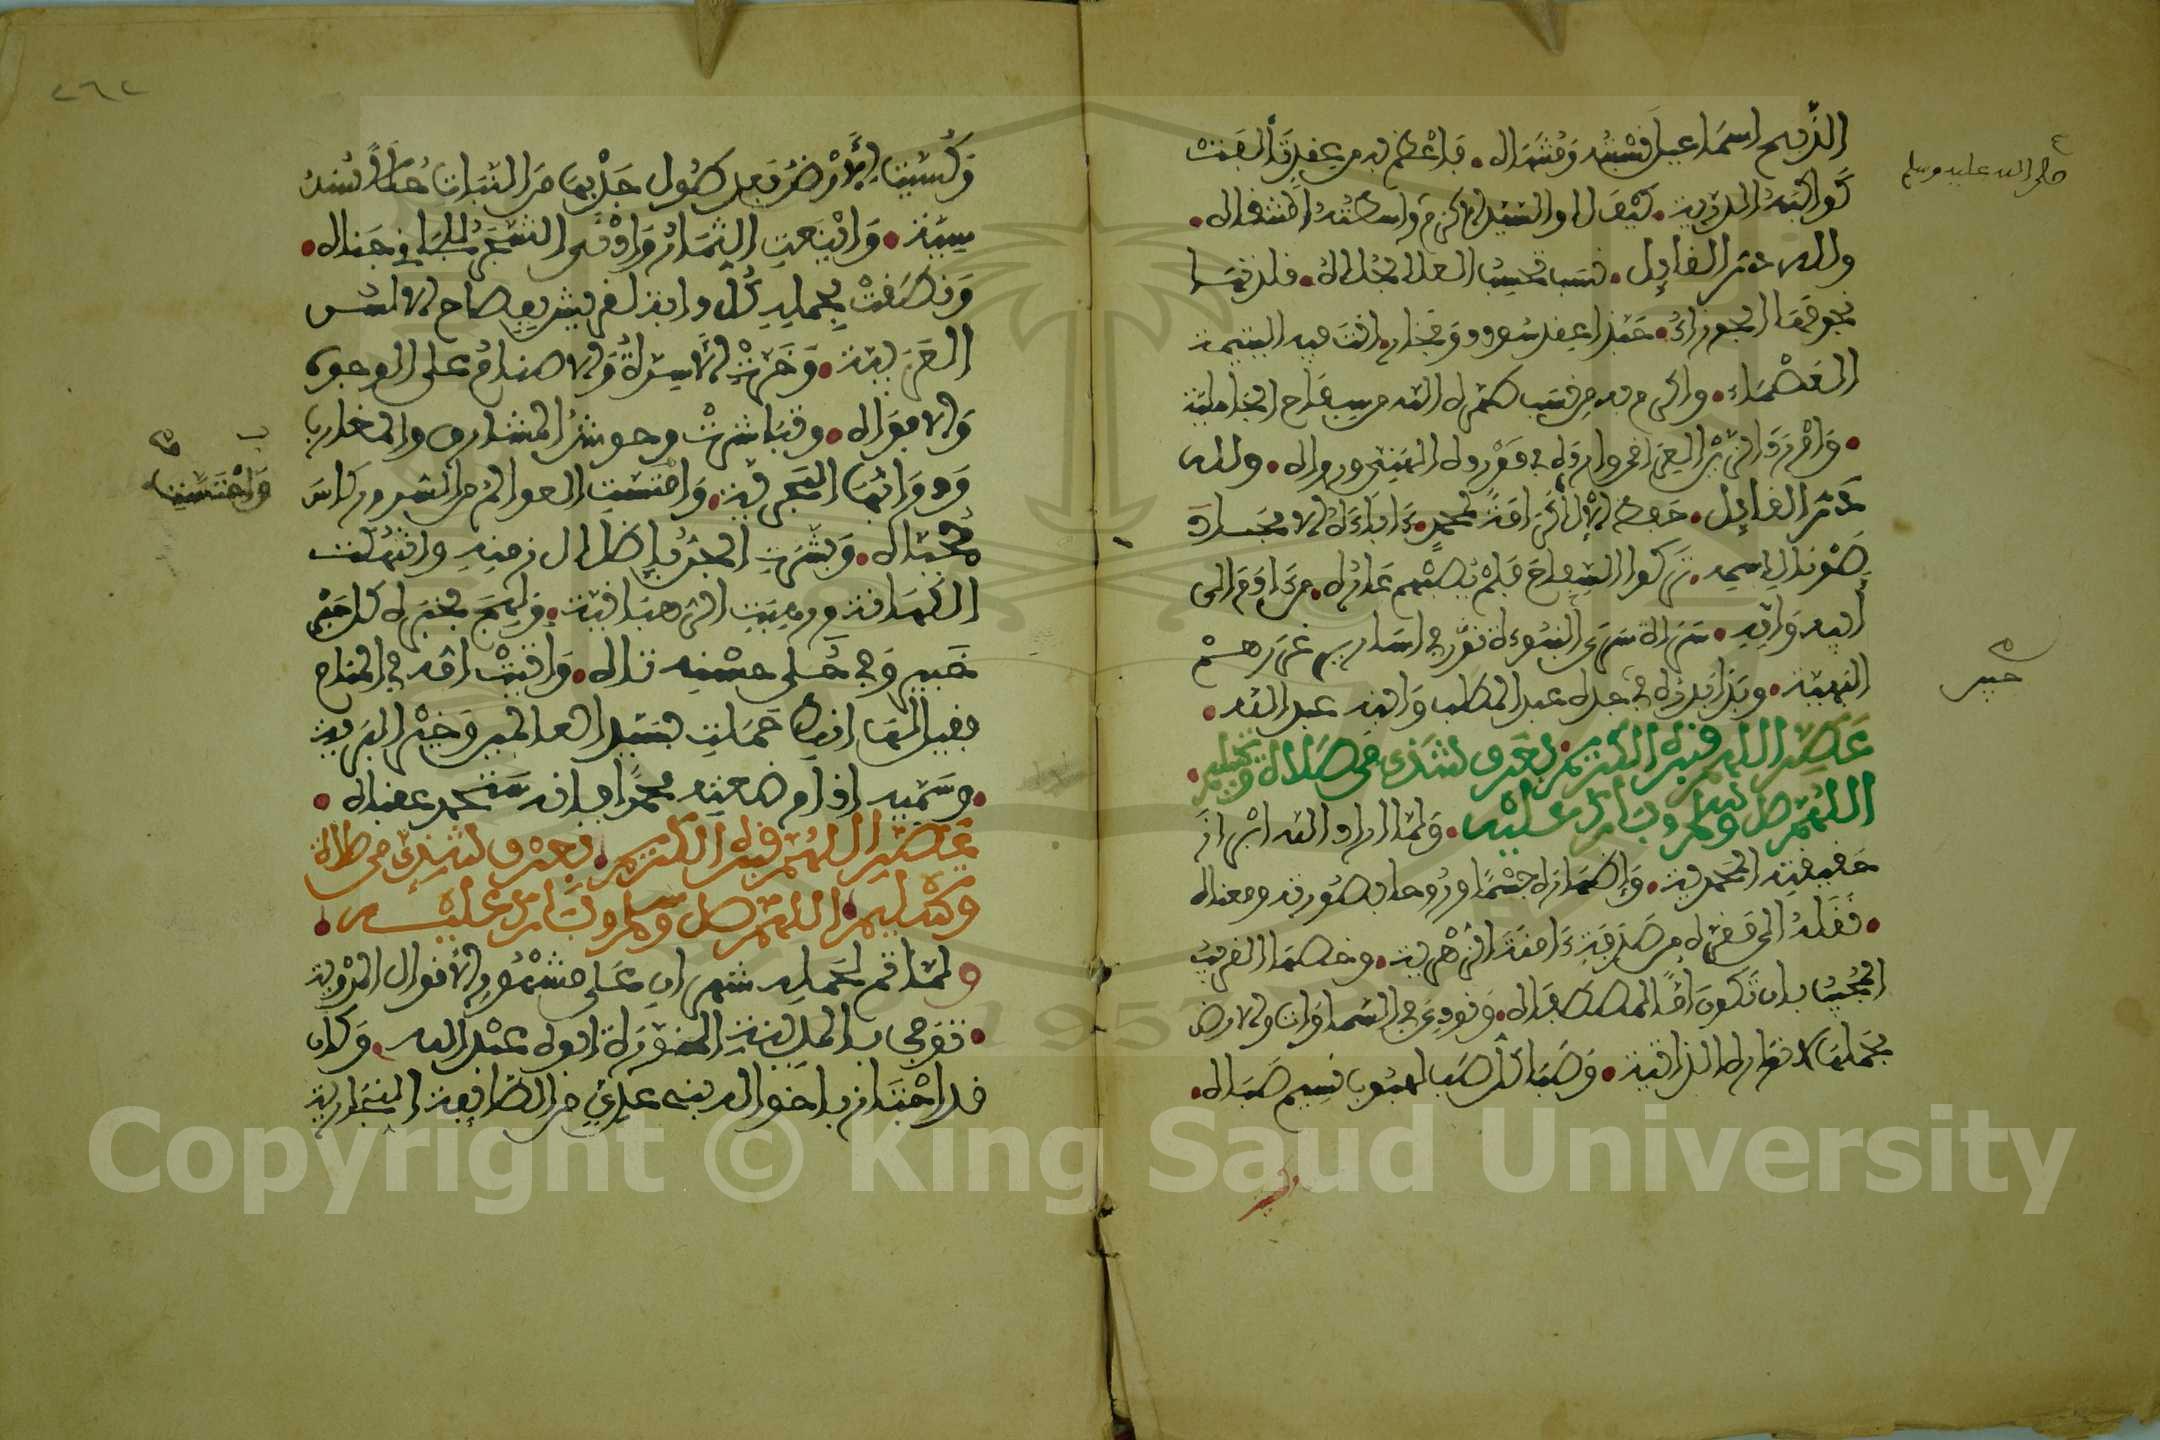 الذبيح اسماعيل نسبته ومنتماه . فاعظم به من عقد تألفت
كواكبه الدرية . كيف لا والسيد الاكرم واسطته المنتقاه .
ولله در القايل . نسب تحسب العلا بحلاه . قلدتها
نجومها الجوزاء . حبذا عقد سودد وفخار . انت فيه اليتيمة
العصماء . واكرم به من نسب طهره الله من سفاح الجاهلية
. واورد الزين العراقي وارده في مورده الهني ورواه . ولله
در القايل . حفظ الاله كرامة لمحمد . ءاباءه الامجاد
صونا لاسمه . تركوا السفاح فلم يصبهم عاره . من ءادم الى
ابيه وامه . سراة سرى النبوءة نور في اسارير غررهم
البهية . وبدر بدره في جده عبد المطلب وابنه عبد الله .
عطر اللهم قبره الكريم بعرف شذي من صلاة وتسليم .
اللهم صل وسلم وبارك عليه . ولما اراد الله ابراز
حقيقته المحمدية . واظهاره جسما وروحا بصورته ومعناه
. نقله الى مقره من صدفة ءامنة الزهرية . وخصها القريب
المجيب بان تكون اما لمصطفاه . ونودي في السماوات والارض
بحملها لانواره الذاتية . وصبا كل صب لهبوب نسيم صباه .
صلى الله عليه وسلم
جبين
٢٦٢
وكسيت الارض بعد طول جدبها من النبات حللا سند
سية . واينعت الثمار وادنى الشجر للجاني جناه .
ونطقت بحمله كل دابة لقريش بفصاح الالسن
العربية . وخرت الاسرة والاصنام على الوجوه
والافواه . وتباشرت وحوش المشارق والمغارب
ودوابها البحرية . واحتست العوالم من السرور كاس
حمياه . وبشرت الجن باظلال زمنه وانتهكت
الكهانة ورهبت الرهبانية . ولهج بخبره كل حبر
خبير وفي حلى حسنه تاه . واتيت امه في المنام
فقيل لها انك حملت بسيد العالمين وخير البرية
. وسميه اذا وضعته محمدا فانه ستحمد عقباه .
عطر اللهم قبره الكريم . بعرف شذي من صلاة
وتسليم . اللهم صل وسلم وبارك عليه .
ولما تم لحمله شهران على مشهور الاقوال المروية
. توفي بالمدينة المنورة ابوه عبد الله . وكان
قد اجتاز باخواله بني عدي من الطايفة النجارية